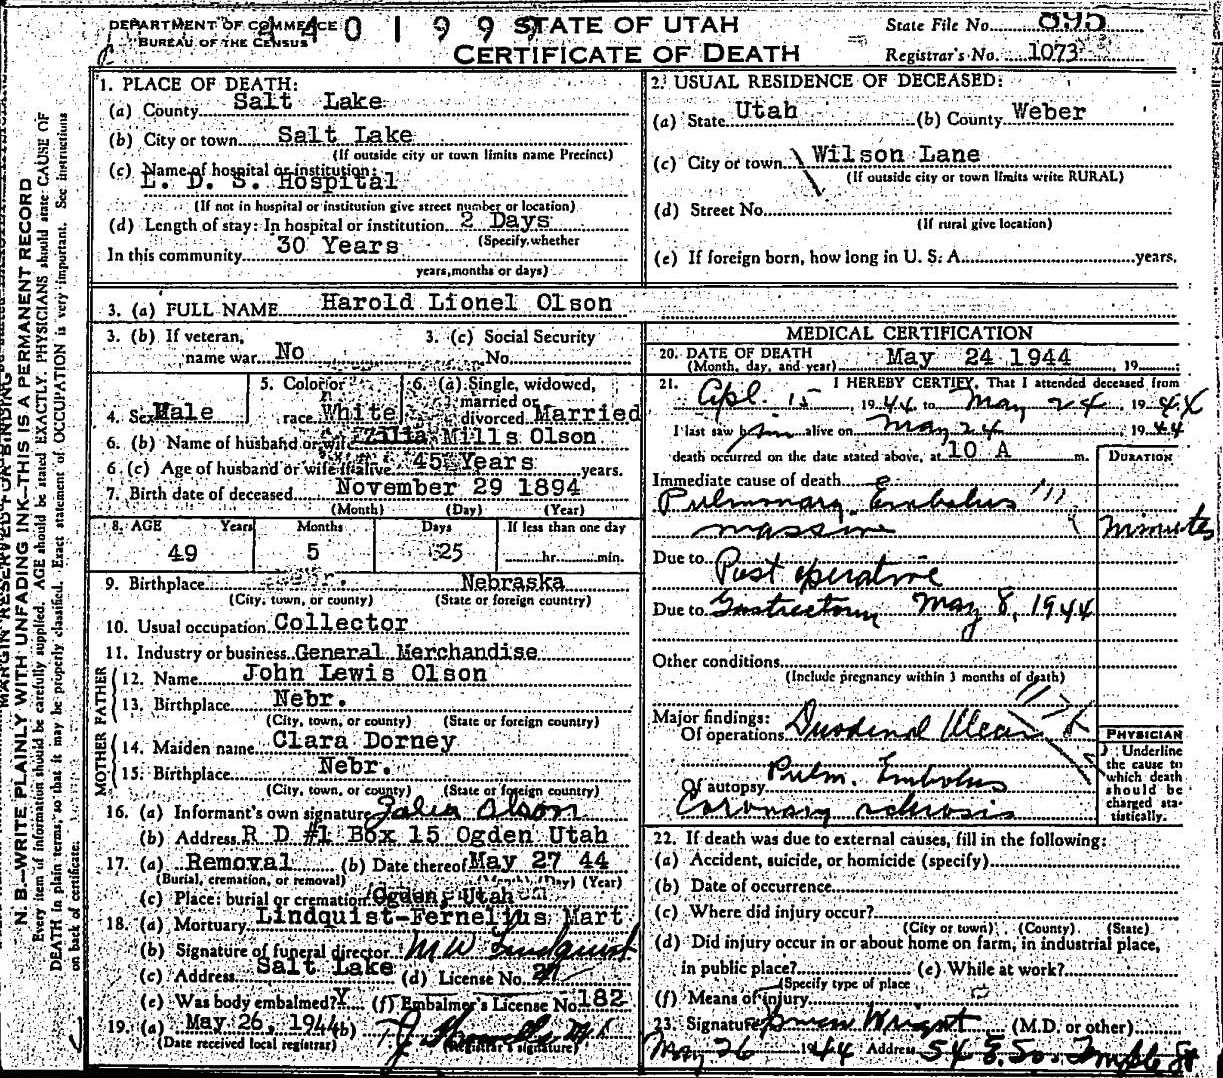 DEPARTMENT OF COMMERCE
BUREAU OF THE CENSUS
440199
STATE OF UTAH
CERTIFICATE OF DEATH
State File No. 895
Registrar's No. 1073
MARGIN RESERVED FOR BINDING
N. B.—WRITE PLAINLY WITH UNFADING INK—THIS IS A PERMANENT RECORD
Every item of information should be carefully supplied. AGE should be stated EXACTLY. PHYSICIANS should state CAUSE OF
DEATH in plain terms, so that it may be properly classified. Exact statement of OCCUPATION is very important. See instructions
on back of certificate.
1. PLACE OF DEATH:
(a) County Salt Lake
(b) City or town Salt Lake
(If outside city or town limits name Precinct)
(c) Name of hospital or institution:
L. D. S. Hospital
(If not in hospital or institution give street number or location)
(d) Length of stay: In hospital or institution 2 Days
(Specify whether
In this community 30 Years
years, months or days)
2. USUAL RESIDENCE OF DECEASED:
(a) State Utah (b) County Weber
(c) City or town Wilson Lane
(If outside city or town limits write RURAL)
(d) Street No.
(If rural give location)
(e) If foreign born, how long in U. S. A. years.
3. (a) FULL NAME Harold Lionel Olson
3. (b) If veteran, name war No
3. (c) Social Security No.
4. Sex Male
5. Color or race White
6. (a) Single, widowed, married or divorced Married
6. (b) Name of husband or wife Zilia Mills Olson
6. (c) Age of husband or wife if alive 45 Years years.
7. Birth date of deceased November 29 1894
(Month) (Day) (Year)
8. AGE Years Months Days If less than one day
49 5 25 hr. min.
9. Birthplace Nebraska
(City, town, or county) (State or foreign country)
10. Usual occupation Collector
11. Industry or business General Merchandise
FATHER
12. Name John Lewis Olson
13. Birthplace Nebr.
(City, town, or county) (State or foreign country)
MOTHER
14. Maiden name Clara Dorney
15. Birthplace Nebr.
(City, town, or county) (State or foreign country)
16. (a) Informant's own signature Olson
(b) Address R D #1 Box 15 Ogden Utah
17. (a) Removal (b) Date thereof May 27 44
(Burial, cremation, or removal) (Month) (Day) (Year)
(c) Place: burial or cremation Ogden, Utah
18. (a) Mortuary Lindquist-Fernelius Mart
(b) Signature of funeral director M W Lindquist
(c) Address Salt Lake (d) License No.
(e) Was body embalmed? Y (f) Embalmer's License No. 182
19. (a) May 26, 1944 (b)
(Date received local registrar) (Registrar's signature)
MEDICAL CERTIFICATION
20. DATE OF DEATH May 24 1944 19
(Month, day, and year)
21. I HEREBY CERTIFY, That I attended deceased from
Apl. 15 1944 to May 24, 1944
I last saw him alive on May 24 1944
death occurred on the date stated above, at 10 A m.
DURATION
Immediate cause of death
Pulmonary Embolus
massive minutes
Due to Post operative
Due to Gastrectomy May 8, 1944
Other conditions
(Include pregnancy within 3 months of death)
Major findings:
Of operations Duodenal Ulcer
Of autopsy Pulm. Embolus
Coronary sclerosis
PHYSICIAN
Underline
the cause to
which death
should be
charged sta-
tistically.
22. If death was due to external causes, fill in the following:
(a) Accident, suicide, or homicide (specify)
(b) Date of occurrence
(c) Where did injury occur?
(City or town) (County) (State)
(d) Did injury occur in or about home on farm, in industrial place,
in public place? (e) While at work?
(Specify type of place
(f) Means of injury
23. Signature Wright (M.D. or other)
May 26 1944 Address 54 E. So. Temple St